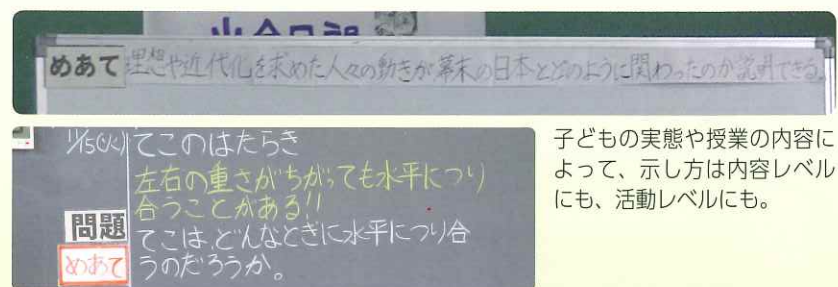 めあて 理想や近代化を求めた人々の動きが幕末の日本とどのように関わったのか説明できる。
11/15(火) てこのはたらき
左右の重さがちがっても水平につり
合うことがある!!
問題 てこは、どんなときに水平につり合
めあて うのだろうか。
子どもの実態や授業の内容に
よって、示し方は内容レベル
にも、活動レベルにも。